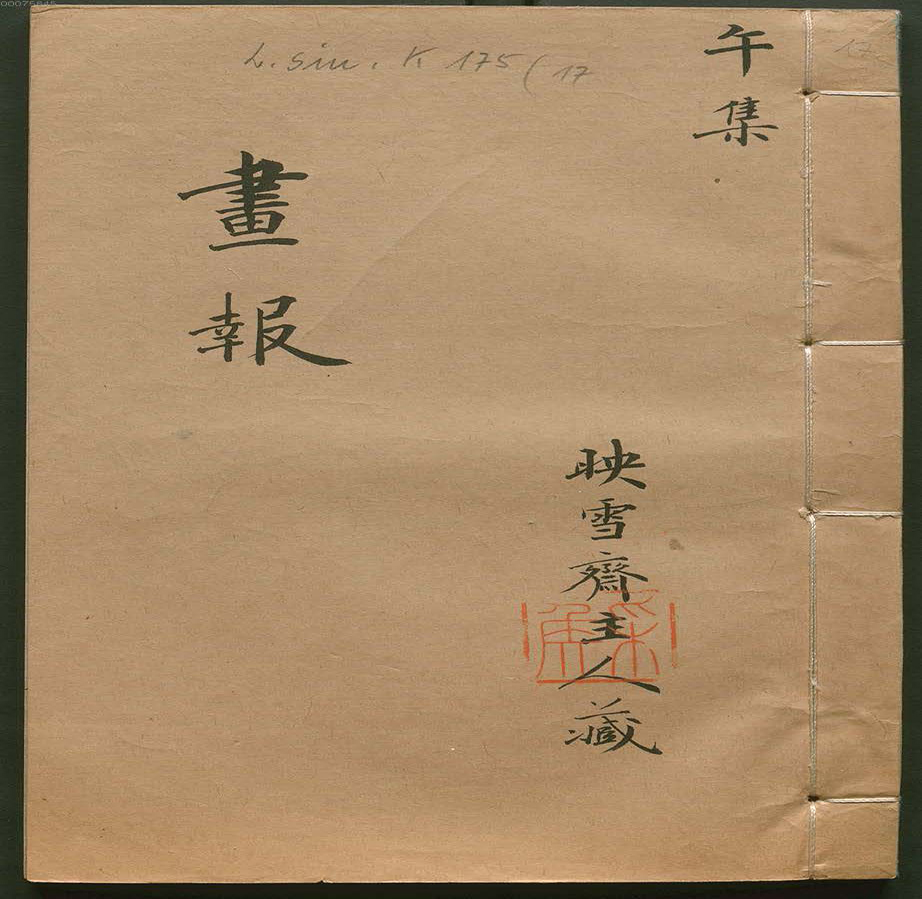 午集
畫報
映雪齋主人藏
L. sin. K 175 (17
17
00075845